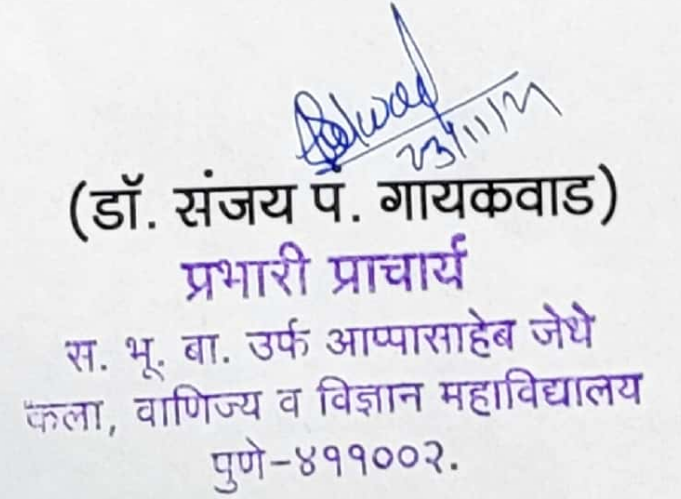 23/11/21
(डॉ. संजय प. गायकवाड)
प्रभारी प्राचार्य
स. भू. बा. उर्फ आप्पासाहेब जेधे
कला, वाणिज्य व विज्ञान महाविद्यालय
पुणे-४११००२.